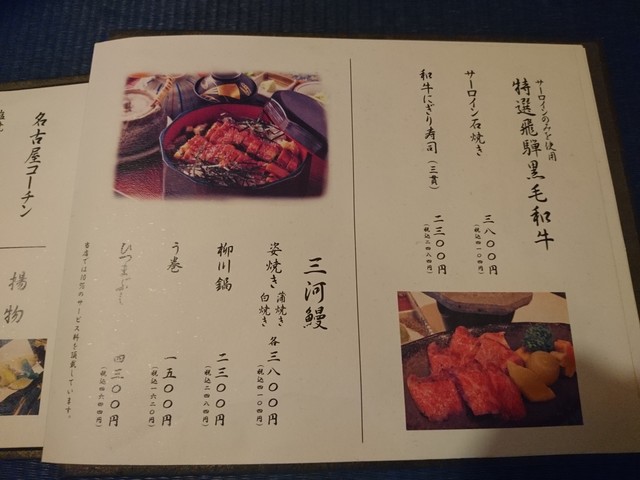 サーロインのみを使用
特選飛騨黒毛和牛
サーロイン石焼き
三八〇〇円
(税込四一〇四円)
和牛にぎり寿司(三貫)
二三〇〇円
(税込二四八四円)
三河鰻
姿焼き 蒲焼き 白焼き 各三八〇〇円
(税込四一〇四円)
柳川鍋
二三〇〇円
(税込二四八四円)
う巻
一五〇〇円
(税込一六二〇円)
ひつまぶし
四三〇〇円
(税込四六四四円)
のサービス料を頂戴しています。
名古屋コーチン
揚物